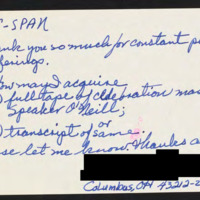 -SPAN
nk you so much for constant p
ferings.
ow may I acquire
) full tape of celebration mas
Speaker O'Neill;
or
) transcript of same.
se let me know. Thanks a
Columbus, OH 43212-2